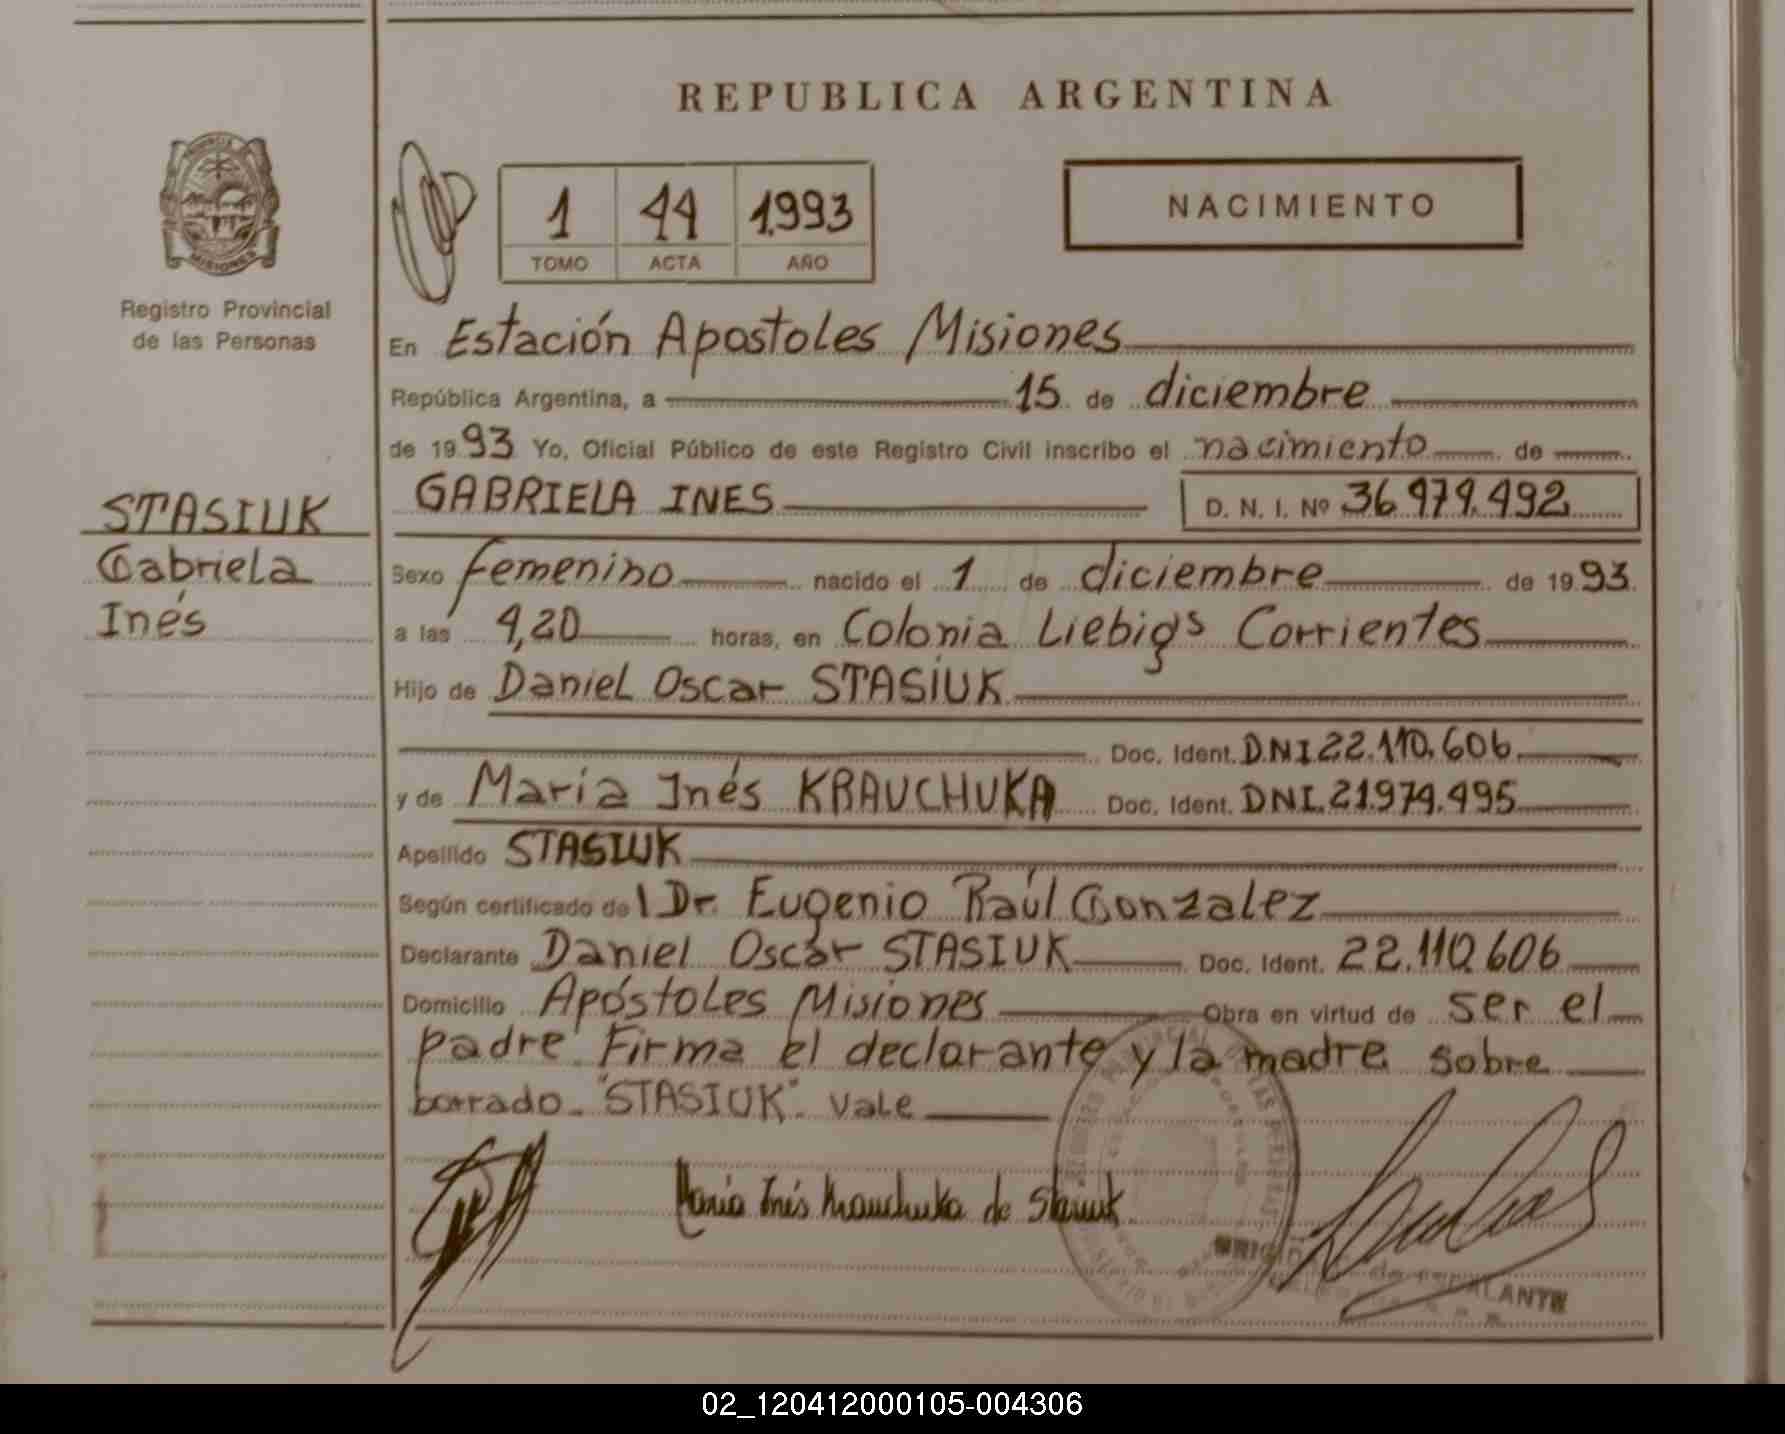 REPUBLICA ARGENTINA
PROVINCIA
MISIONES
Registro Provincial
de las Personas
1 44 1.993
TOMO ACTA AÑO
NACIMIENTO
En Estación Apostoles Misiones
República Argentina, a 15 de diciembre
de 1993 Yo, Oficial Público de este Registro Civil inscribo el nacimiento de
GABRIELA INES D. N. I. Nº 36.979.492
STASIUK
Gabriela
Inés
Sexo femenino nacido el 1 de diciembre de 1993
a las 4,20 horas, en Colonia Liebigs Corrientes
Hijo de Daniel Oscar STASIUK
Doc. Ident. D.N.I 22.110.606
y de María Inés KRAUCHUKA Doc. Ident. DNI.21.974.495
Apellido STASIUK
Según certificado del Dr. Eugenio Raúl Gonzalez
Declarante Daniel Oscar STASIUK Doc. Ident. 22.110.606
Domicilio Apóstoles Misiones Obra en virtud de ser el
padre Firma el declarante y la madre sobre
borrado "STASIUK". Vale
María Inés Krauchuka de Stasiuk
02_120412000105-004306